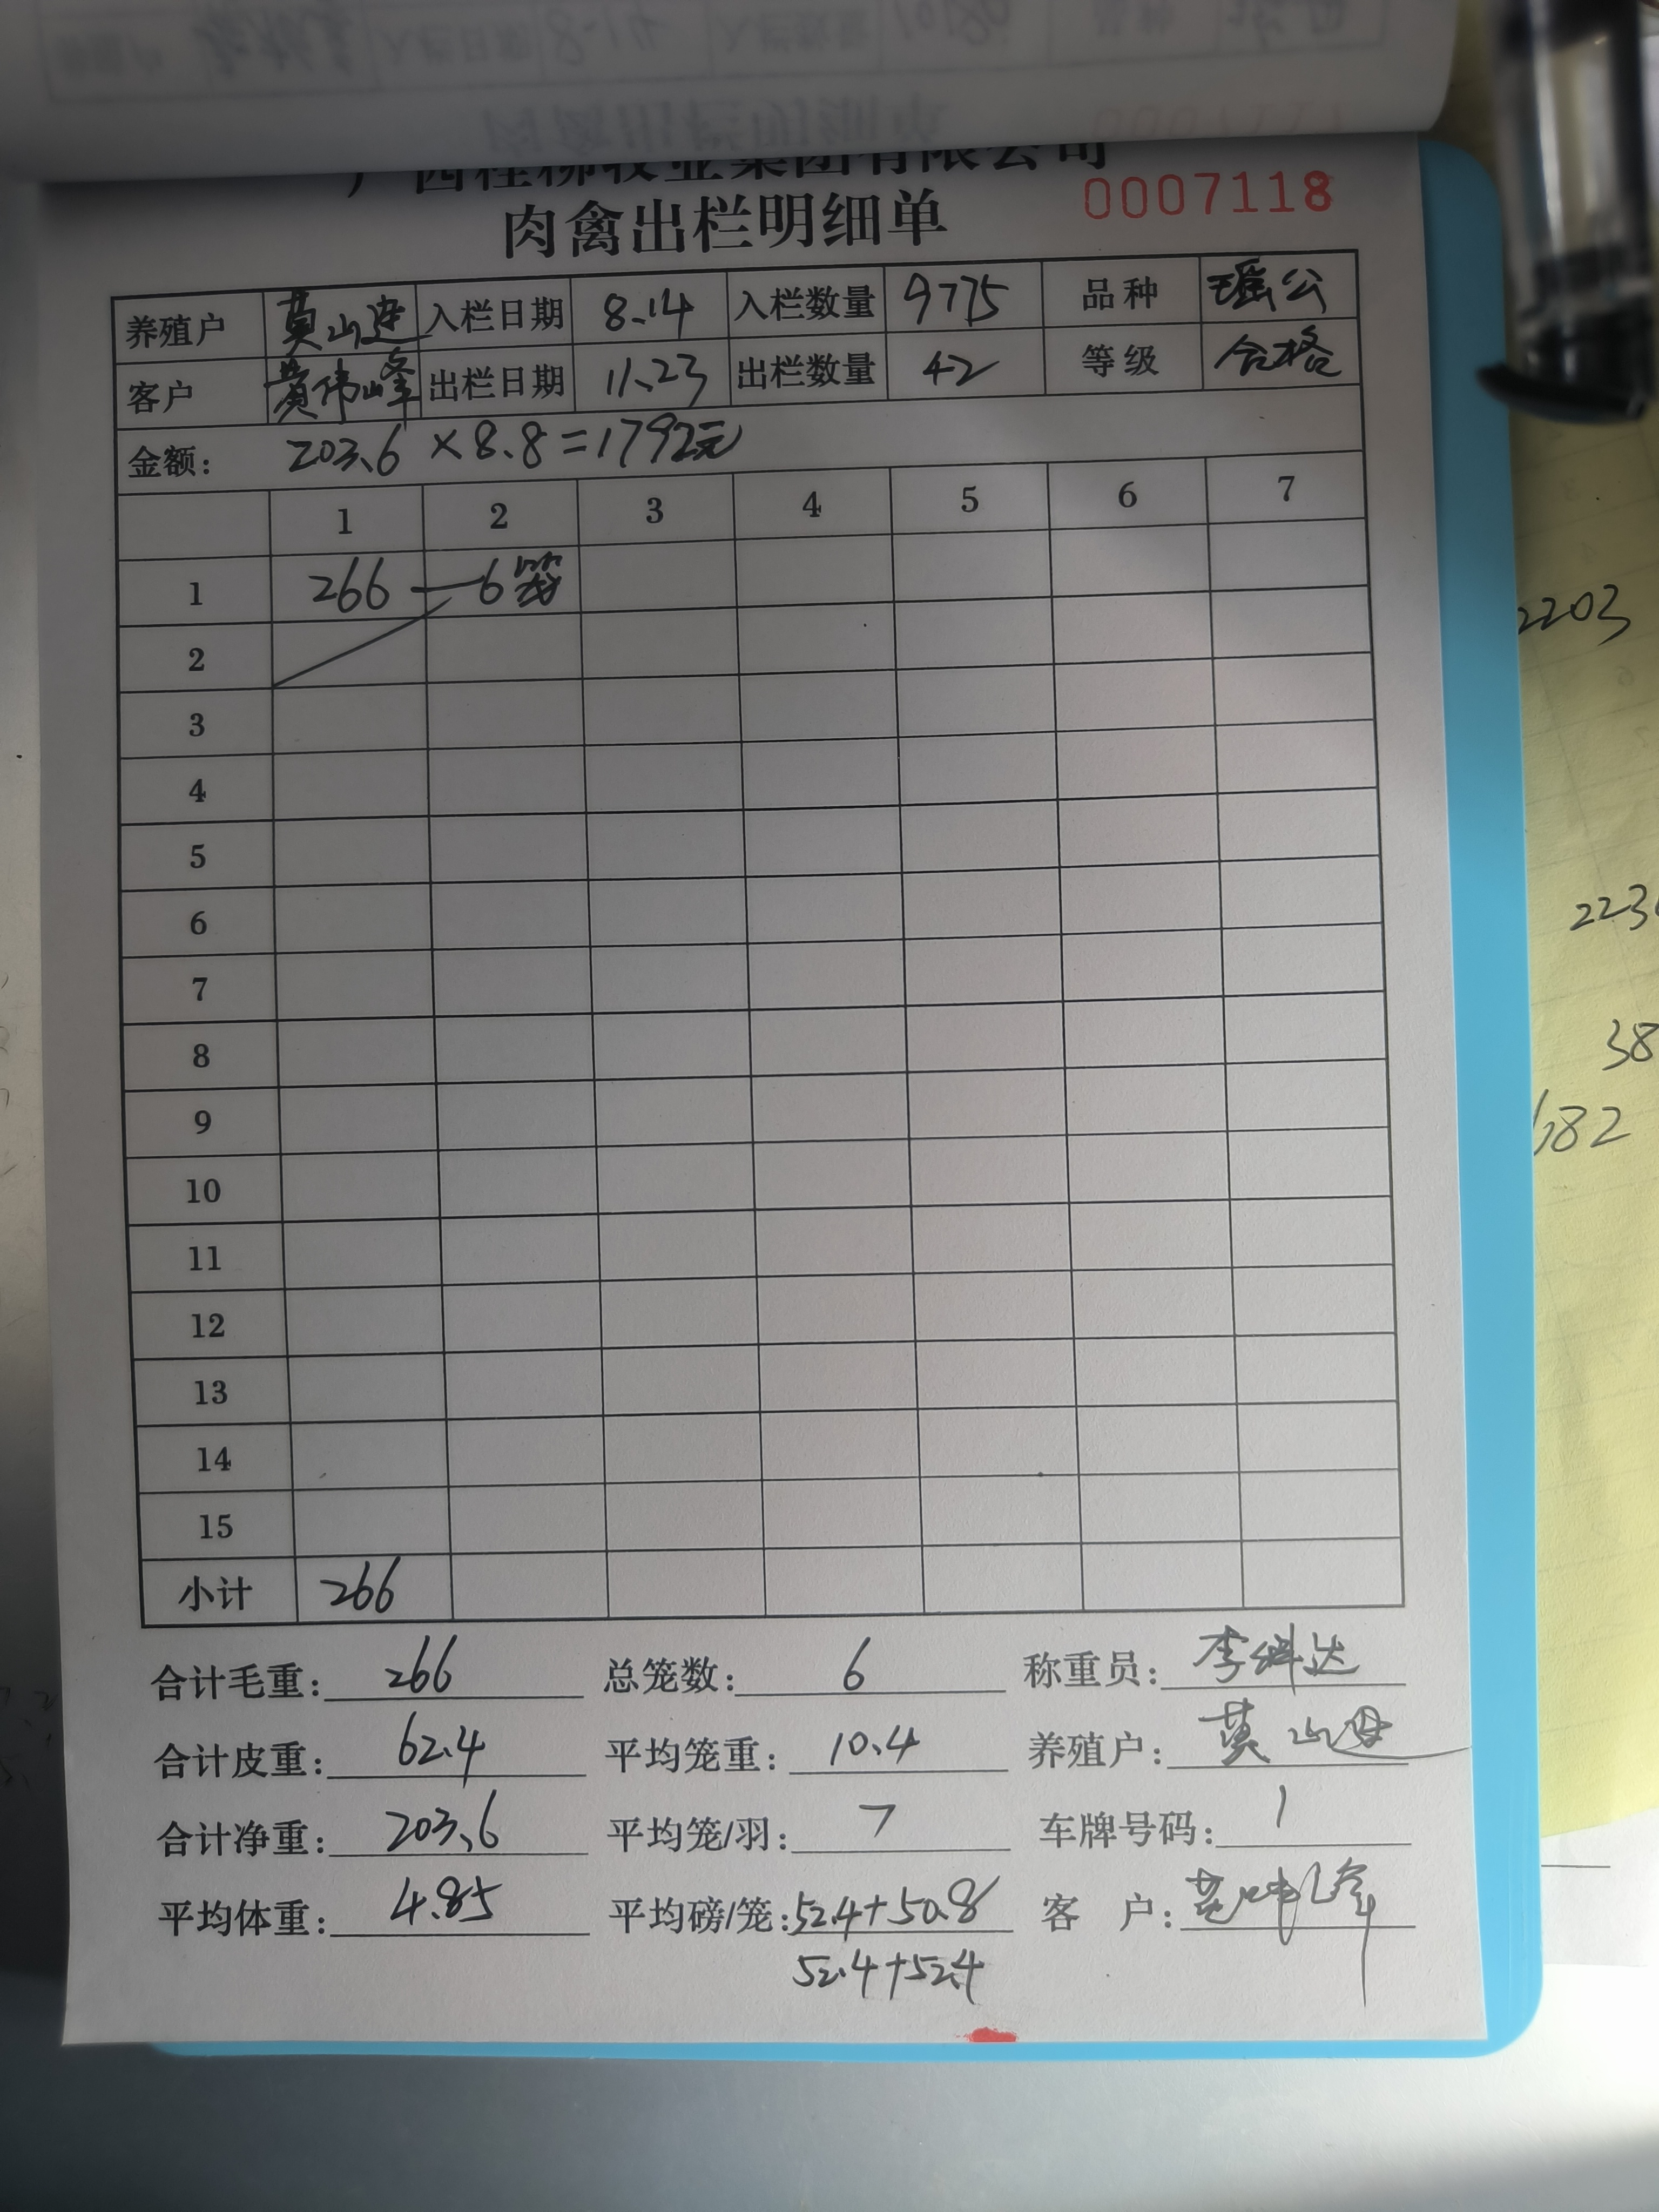 广西桂柳牧业集团有限公司
肉禽出栏明细单 0007118
养殖户 莫山建 入栏日期 8.14 入栏数量 9775 品种 瑶公
客户 黄伟峰 出栏日期 11.23 出栏数量 42 等级 合格
金额: 203.6×8.8=1792元
1 2 3 4 5 6 7
1 266 — 6笼
2
3
4
5
6
7
8
9
10
11
12
13
14
15
小计 266
合计毛重: 266 总笼数: 6 称重员: 李
合计皮重: 62.4 平均笼重: 10.4 养殖户: 莫山建
合计净重: 203.6 平均笼/羽: 7 车牌号码: 1
平均体重: 4.85 平均磅/笼: 52.4+50.8 客 户: 黄伟峰
52.4+52.4
2203
223
38
682